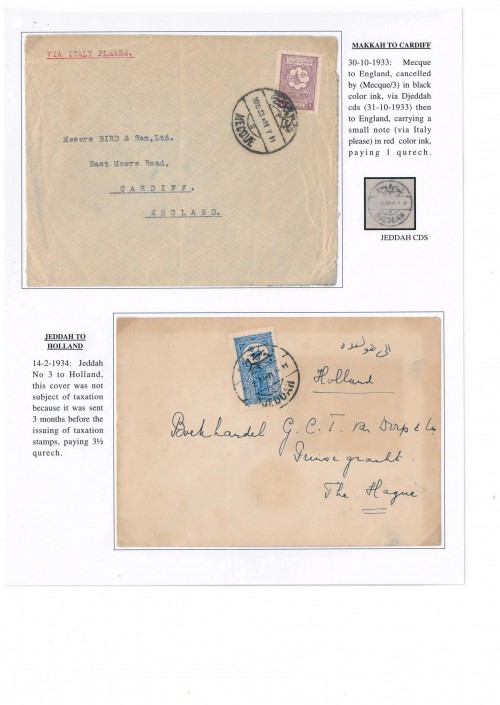 MAKKAH TO CARDIFF
30-10-1933: Mecque
to England, cancelled
by (Mecque/3) in black
color ink, via Djeddah
cds (31-10-1933) then
to England, carrying a
small note (via Italy
please) in red color ink,
paying 1 qurech.
VIA ITALY PLEASE.
MECQUE
Messrs BIRD & Son,Ltd.
East Moore Road,
CARDIFF.
ENGLAND.
DJEDDAH
JEDDAH CDS
JEDDAH TO
HOLLAND
14-2-1934: Jeddah
No 3 to Holland,
this cover was not
subject of taxation
because it was sent
3 months before the
issuing of taxation
stamps, paying 3½
qurech.
DJEDDAH
الى هولنده
Holland
Boekhandel G. C. T. van Dorp & Co
The Hague